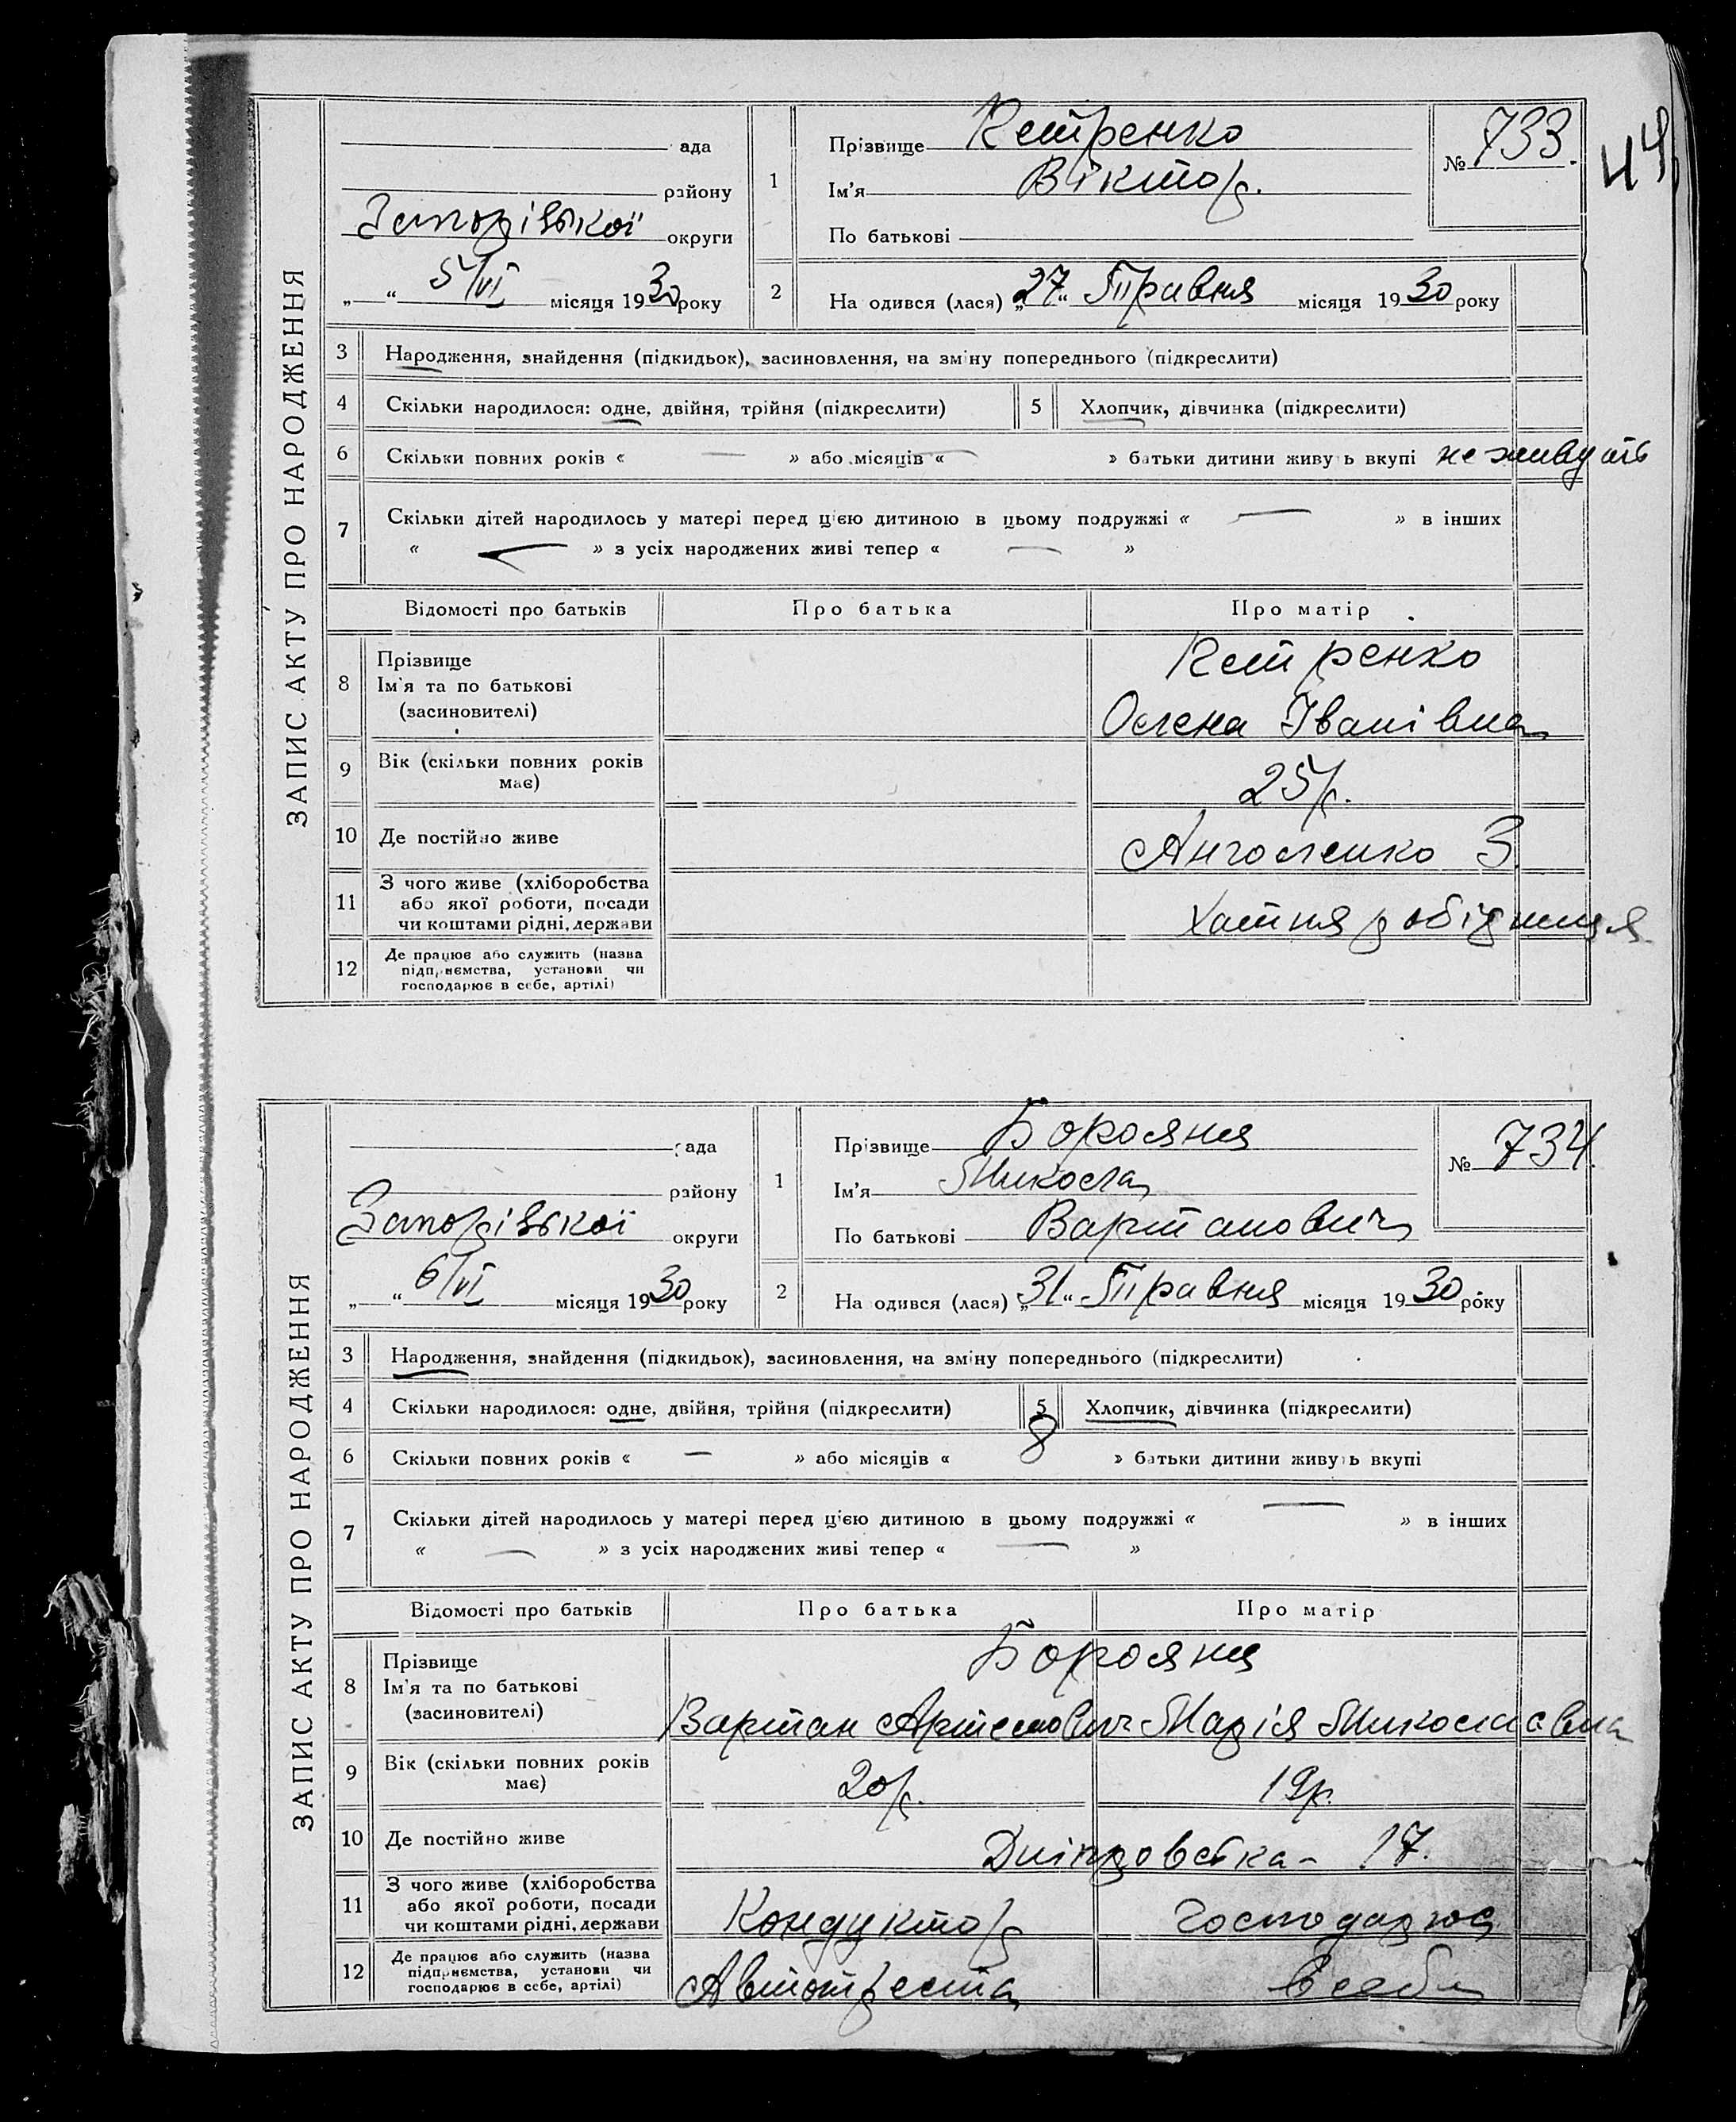 ЗАПИС АКТУ ПРО НАРОДЖЕННЯ
ада
району
Запорізької округи
„ “ 5/VI місяця 1930 року
1 Прізвище Кетренко
Ім'я Віктор.
По батькові
№ 733.
44
2 На одився (лася) „27“ Травня місяця 1930 року
3 Народження, знайдення (підкидьок), засиновлення, на зміну попереднього (підкреслити)
4 Скільки народилося: одне, двійня, трійня (підкреслити)
5 Хлопчик, дівчинка (підкреслити)
6 Скільки повних років « — » або місяців « — » батьки дитини живу ь вкупі не живуть
7 Скільки дітей народилось у матері перед цією дитиною в цьому подружжі « — » в інших
« — » з усіх народжених живі тепер « — »
Відомості про батьків Про батька Про матір
8 Прізвище
Ім'я та по батькові
(засиновителі)
Кетренко
Олена Іванівна
9 Вік (скільки повних років
має)
25 р.
10 Де постійно живе
Анголенко 3.
11 З чого живе (хліборобства
або якої роботи, посади
чи коштами рідні, держави
Хатня робітниця
12 Де працює або служить (назва
підприємства, установи чи
господарює в себе, артілі)
ЗАПИС АКТУ ПРО НАРОДЖЕННЯ
рада
району
Запорізької округи
„ “ 6/VI місяця 1930 року
1 Прізвище Борояня
Ім'я Микола
По батькові Вартанович
№ 734.
2 На одився (лася) „31“ Травня місяця 1930 року
3 Народження, знайдення (підкидьок), засиновлення, на зміну попереднього (підкреслити)
4 Скільки народилося: одне, двійня, трійня (підкреслити)
5 Хлопчик, дівчинка (підкреслити)
6 Скільки повних років « — » або місяців « 8 » батьки дитини живу ь вкупі
7 Скільки дітей народилось у матері перед цією дитиною в цьому подружжі « — » в інших
« — » з усіх народжених живі тепер « — »
Відомості про батьків Про батька Про матір
8 Прізвище
Ім'я та по батькові
(засиновителі)
Борояня
Вартан Артемович Марія Миколаєвна
9 Вік (скільки повних років
має)
20 р. 19 р.
10 Де постійно живе
Дніпровська - 17.
11 З чого живе (хліборобства
або якої роботи, посади
чи коштами рідні, держави
Кондуктор Господарює
12 Де працює або служить (назва
підприємства, установи чи
господарює в себе, артілі)
Автотреста в себе